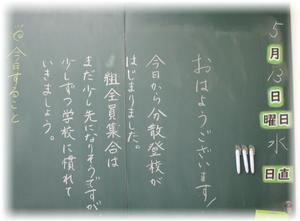 5
月
13
日
曜日
水
日直
おはようございます!
今日から分散登校が
はじまりました。
組全員集合は
まだ少し先になりそうですが、
少しずつ学校に慣れて
いきましょう。
◎今日すること